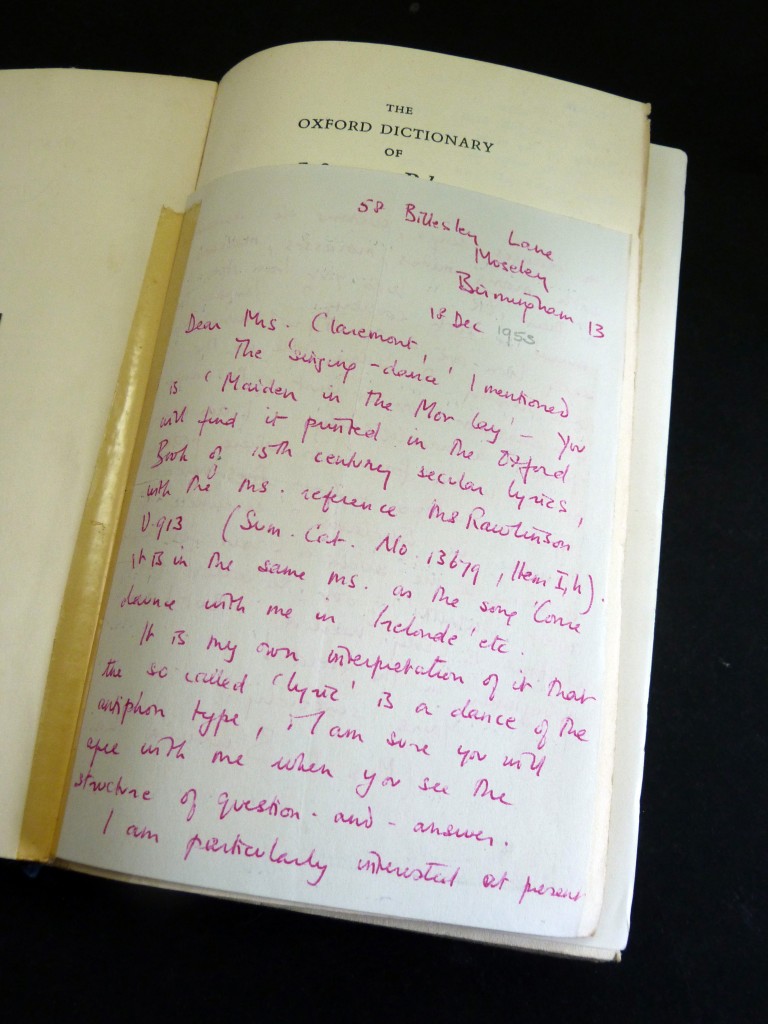 THE
OXFORD DICTIONARY
OF
58 Billesley Lane
Moseley
Birmingham 13
18 Dec 1953
Dear Mrs. Claremont,
The 'singing-dance' I mentioned
is 'Maiden in the Mor lay' – You
will find it printed in the Oxford
Book of 15th century secular lyrics,
with the ms. reference MS Rawlinson
D.913 (Sum. Cat. No. 13679, Item I, h).
it is in the same ms. as the song 'Come
daunce with me in Irelonde' etc.
It is my own interpretation of it that
the so called 'lyric' is a dance of the
antiphon type, & I am sure you will
agree with me when you see the
structure of question-and-answer.
I am particularly interested at present